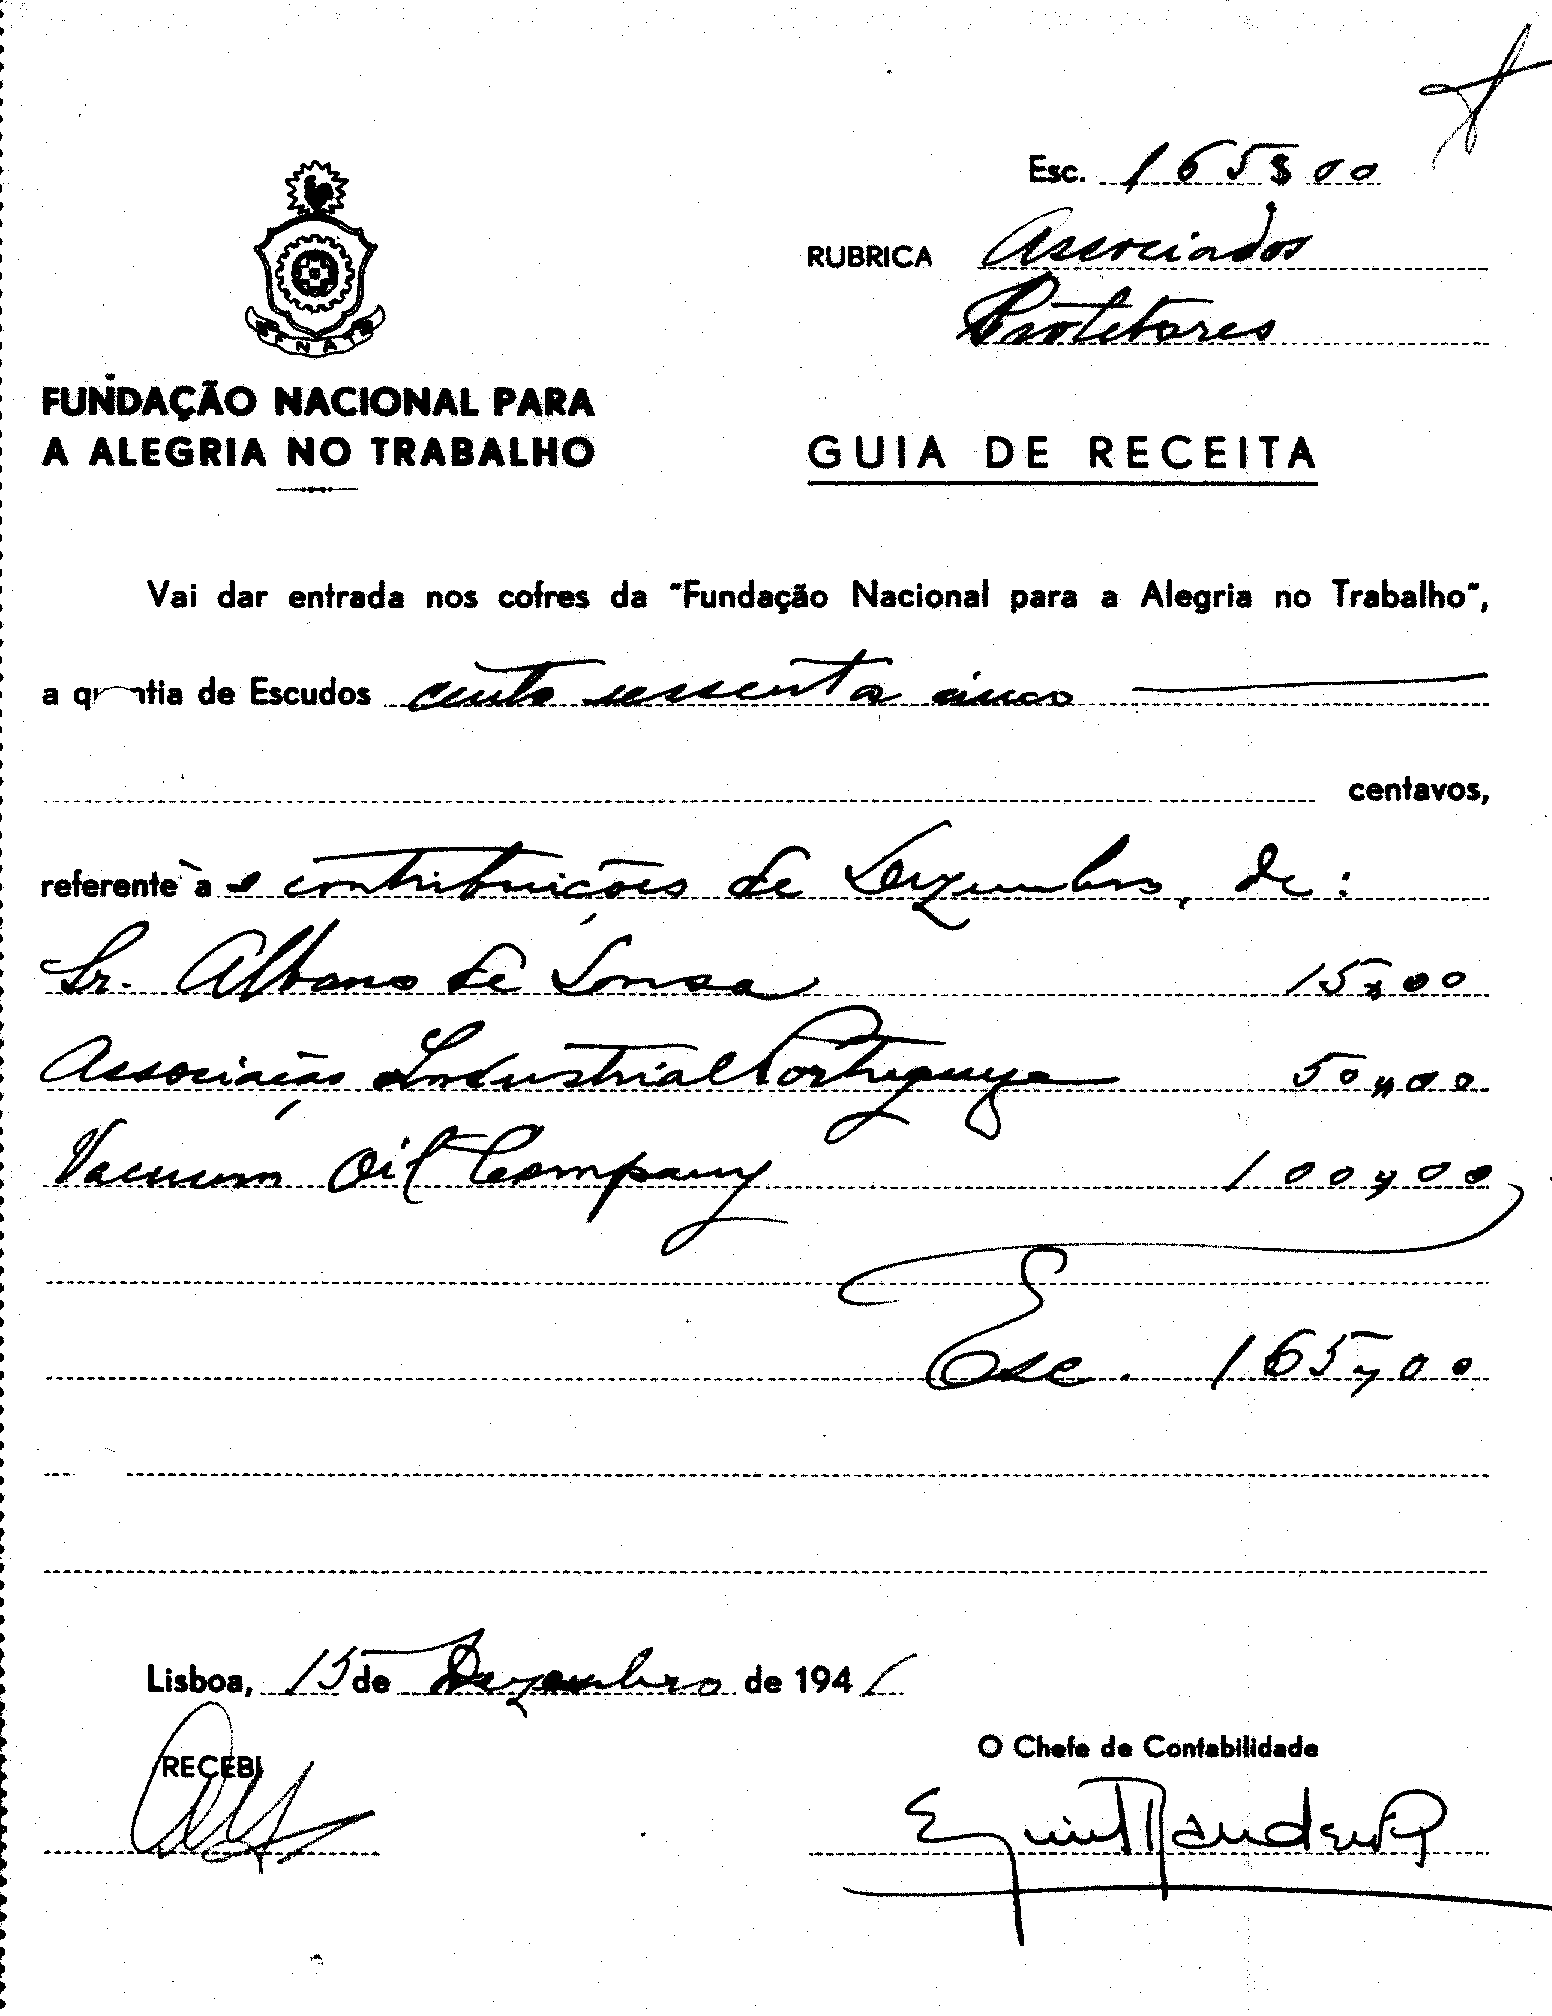 Esc. 165$00
RUBRICA Associados
Protetores
FNAT
FUNDAÇÃO NACIONAL PARA
A ALEGRIA NO TRABALHO
GUIA DE RECEITA
Vai dar entrada nos cofres da "Fundação Nacional para a Alegria no Trabalho",
a quantia de Escudos cento sessenta cinco
centavos,
referente a contribuições de Dezembro, de:
Sr. Albano de Sousa 15,00
Associação Industrial Portugueza 50,00
Vacuum Oil Company 100,00
Esc. 165,00
Lisboa, 15 de Dezembro de 1941
RECEBI
O Chefe de Contabilidade